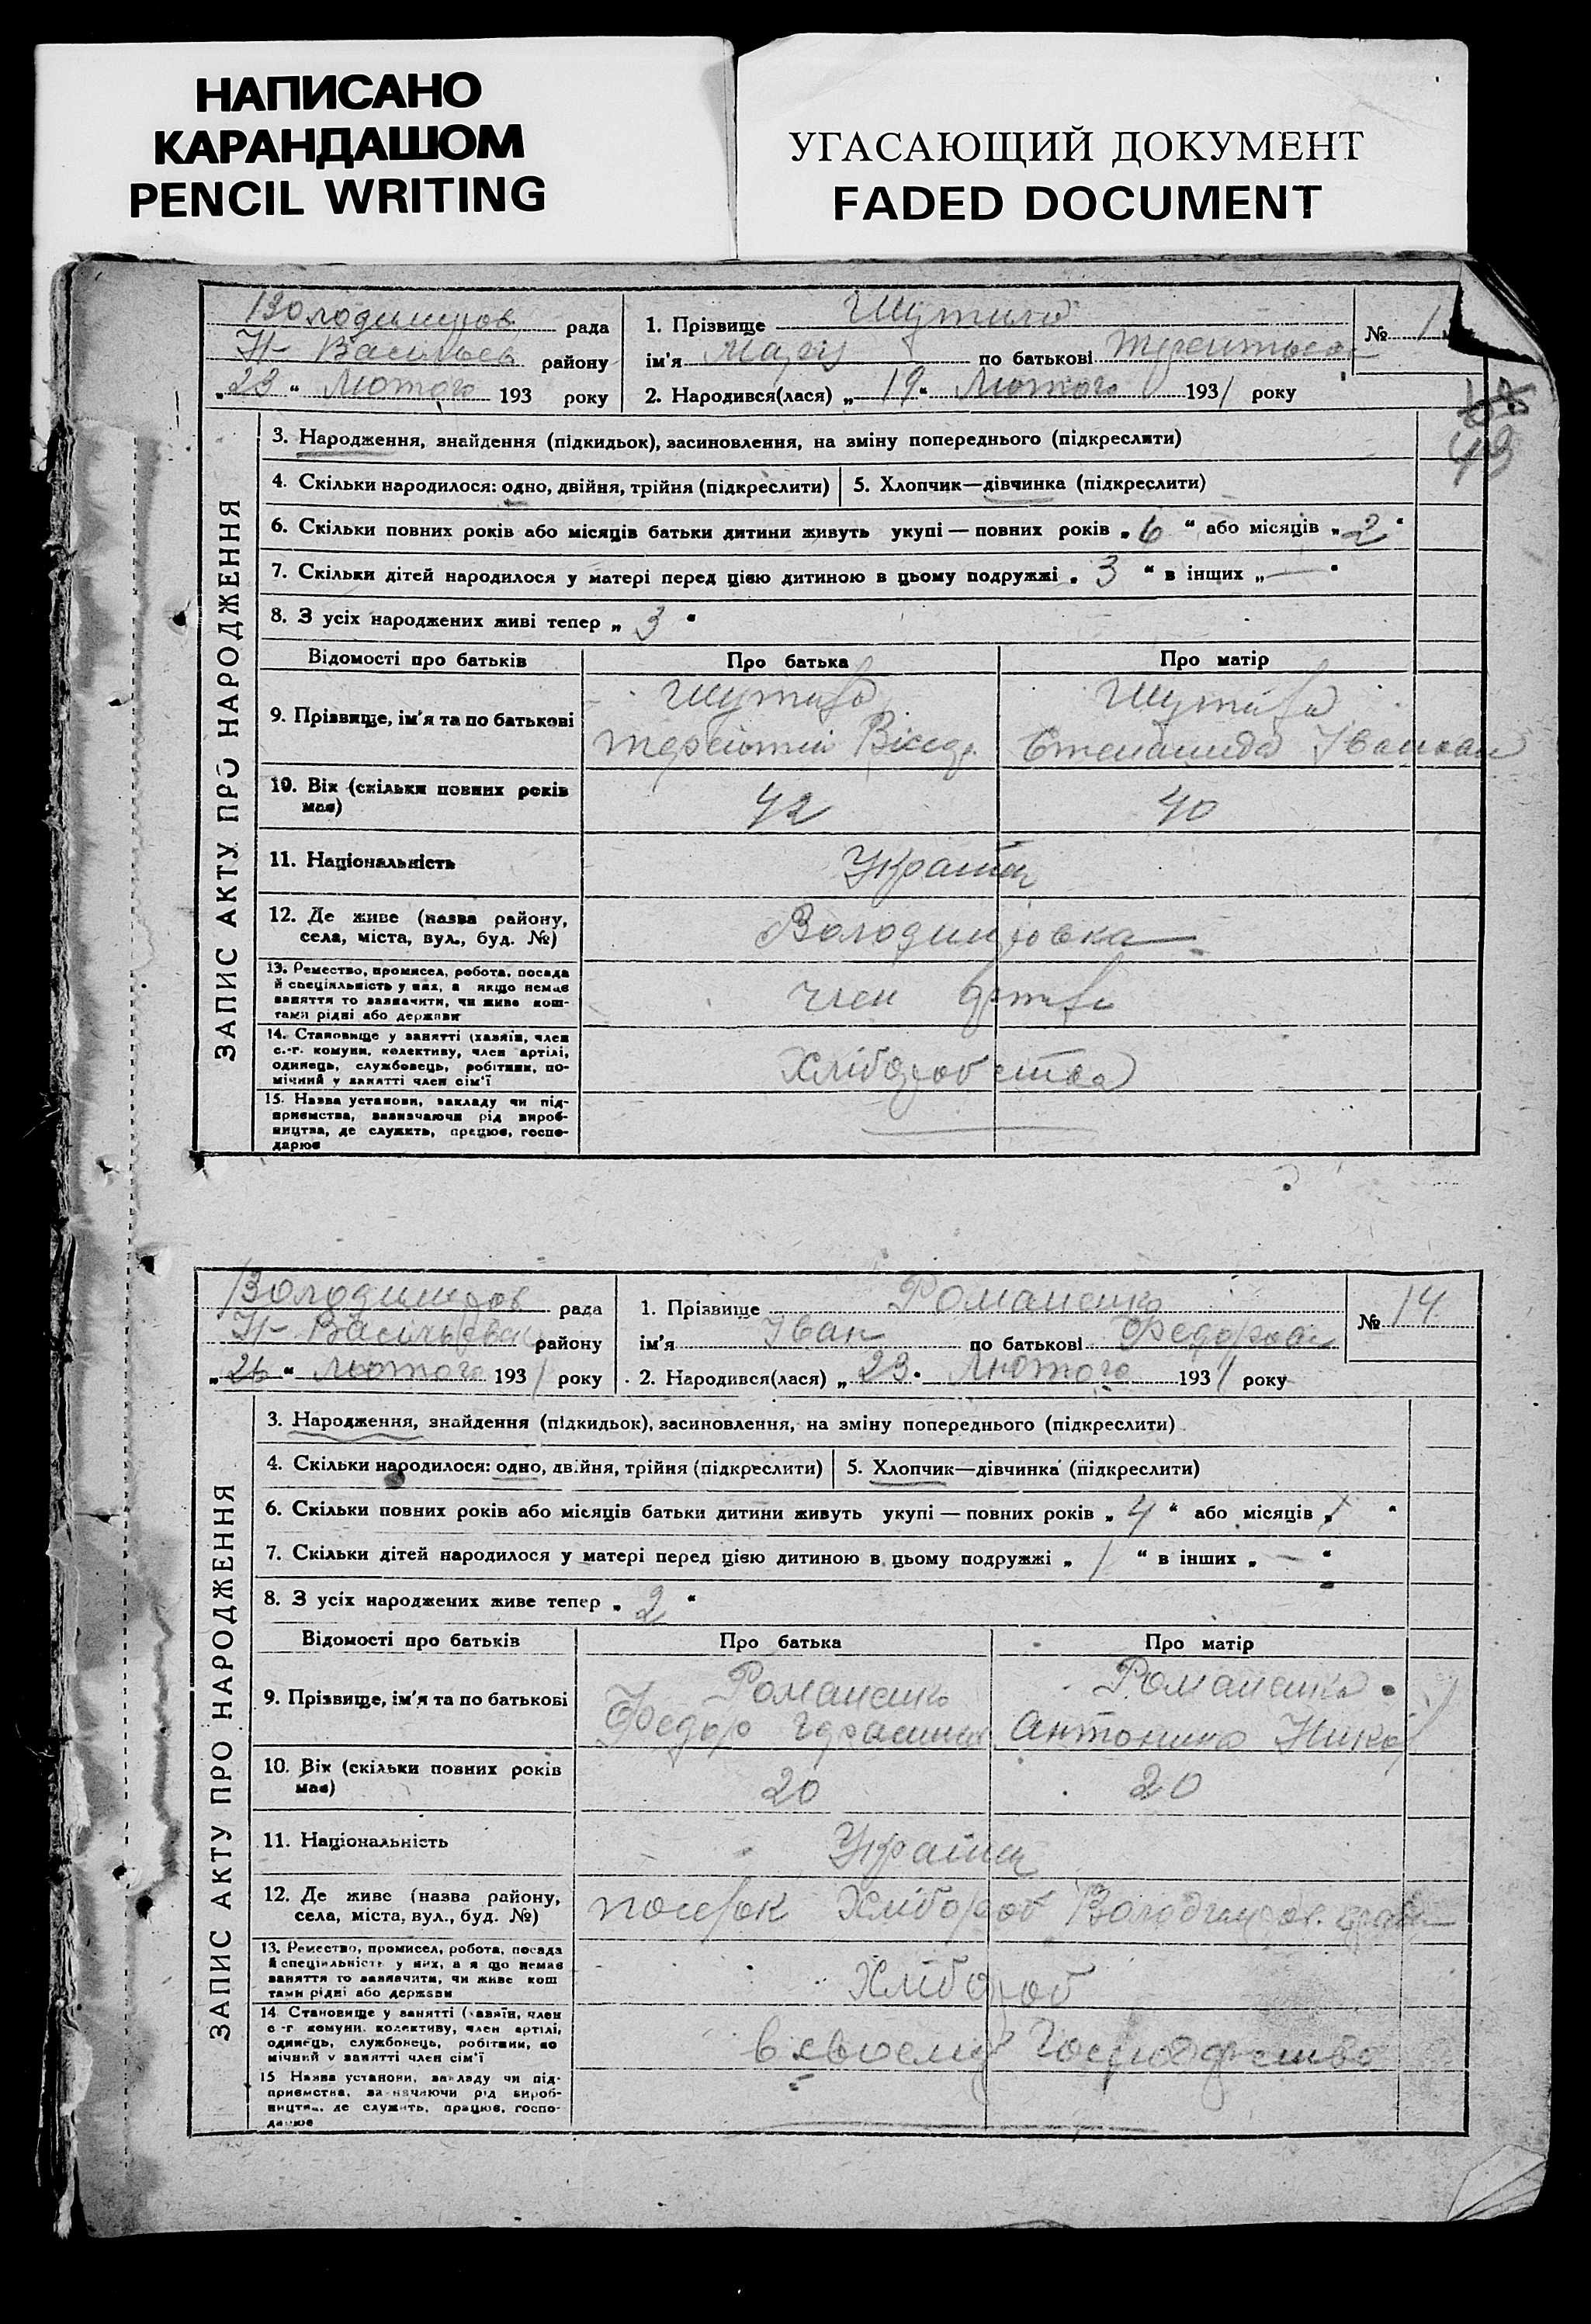 НАПИСАНО
КАРАНДАШОМ
PENCIL WRITING
УГАСАЮЩИЙ ДОКУМЕНТ
FADED DOCUMENT
Володимиров рада
Н-Васильев району
„23“ Лютого 193 року
1. Прізвище
ім'я по батькові
2. Народився(лася) „19“ Лютого 1931 року
№ 1
43
ЗАПИС АКТУ ПРО НАРОДЖЕННЯ
3. Народження, знайдення (підкидьок), засиновлення, на зміну попереднього (підкреслити)
4. Скільки народилося: одно, двійня, трійня (підкреслити)
5. Хлопчик—дівчинка (підкреслити)
6. Скільки повних років або місяців батьки дитини живуть укупі — повних років „6“ або місяців „2“
7. Скільки дітей народилося у матері перед цією дитиною в цьому подружжі „3“ в інших „—“
8. З усіх народжених живі тепер „3“
Відомості про батьків Про батька Про матір
9. Прізвище, ім'я та по батькові
10. Вік (скільки повних років має) 42 40
11. Національність Україн
12. Де живе (назва району, села, міста, вул., буд. №) Володимировка
13. Ремество, промисел, робота, посада
й спеціяльність у них, а якщо немає
заняття то зазначити, чи живе кош-
тами рідні або держави
член
14. Становище у занятті (хазяїн, член
с.-г. комуни, колективу, член артілі,
одинець, службовець, робітник, по-
мічний у занятті член сім'ї
Хліборобства
15. Назва установи, закладу чи під-
приємства, зазначаючи рід вироб-
ництва, де служить, працює, госпо-
дарює
Володимиров рада
Н-Васильевск району
„26“ лютого 1931 року
1. Прізвище Романенко
ім'я Іван по батькові Федоров
2. Народився(лася) „23“ Лютого 1931 року
№ 14
ЗАПИС АКТУ ПРО НАРОДЖЕННЯ
3. Народження, знайдення (підкидьок), засиновлення, на зміну попереднього (підкреслити)
4. Скільки народилося: одно, двійня, трійня (підкреслити)
5. Хлопчик—дівчинка (підкреслити)
6. Скільки повних років або місяців батьки дитини живуть укупі — повних років „4“ або місяців „1“
7. Скільки дітей народилося у матері перед цією дитиною в цьому подружжі „1“ в інших „—“
8. З усіх народжених живе тепер „2“
Відомості про батьків Про батька Про матір
9. Прізвище, ім'я та по батькові
Романенко Романенко
Федор Антонина
10. Вік (скільки повних років має) 20 20
11. Національність Україн
12. Де живе (назва району, села, міста, вул., буд. №) Хлібороб Володимиров.
13. Ремество, промисел, робота, посада
й спеціяльність у них, а якщо немає
заняття то зазначити, чи живе кош
тами рідні або держави
Хлібороб
14 Становище у занятті (хазяїн, член
с-г комуни, колективу, член артілі,
одинець, службовець, робітник, по
мічний у занятті член сім'ї
в своему
15 Назва установи, закладу чи під-
приємства, зазначаючи рід вироб-
ництва, де служить, працює, госпо-
дарює